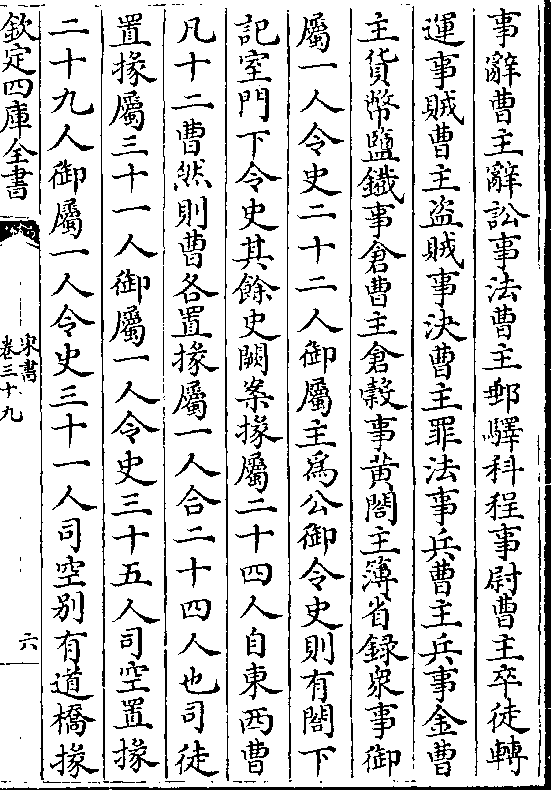 事辭曹主辭訟事法曹主郵驛科程事尉曹主卒徒轉
運事賊曹主盜賊事決曹主罪法事兵曹主兵事金曹
主貨幣鹽鐵事倉曹主倉穀事黃閤主簿省録衆事御
屬一人令史二十二人御屬主爲公御令史則有閤下
記室門下令史其餘史闕案掾屬二十四人自東西曹
凡十二曹然則曹各置掾屬一人合二十四人也司徒
置掾屬三十一人御屬一人令史三十五人司空置掾
二十九人御屬一人令史三十一人司空别有道橋掾
欽定四庫全書
宋書
卷三十九
六